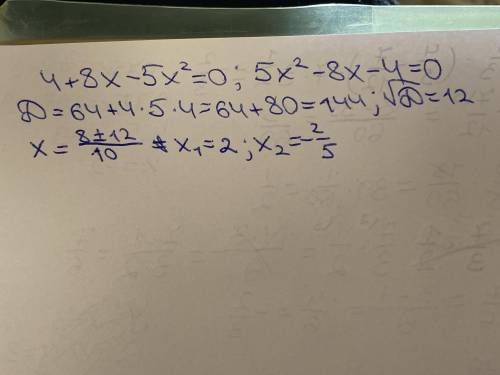 4+8x-5x²=0; 5x²-8x-4=0
D=64+4·5·4=64+80=144; √D=12
x=(8±12)/10 x₁=2; x₂=-2/5